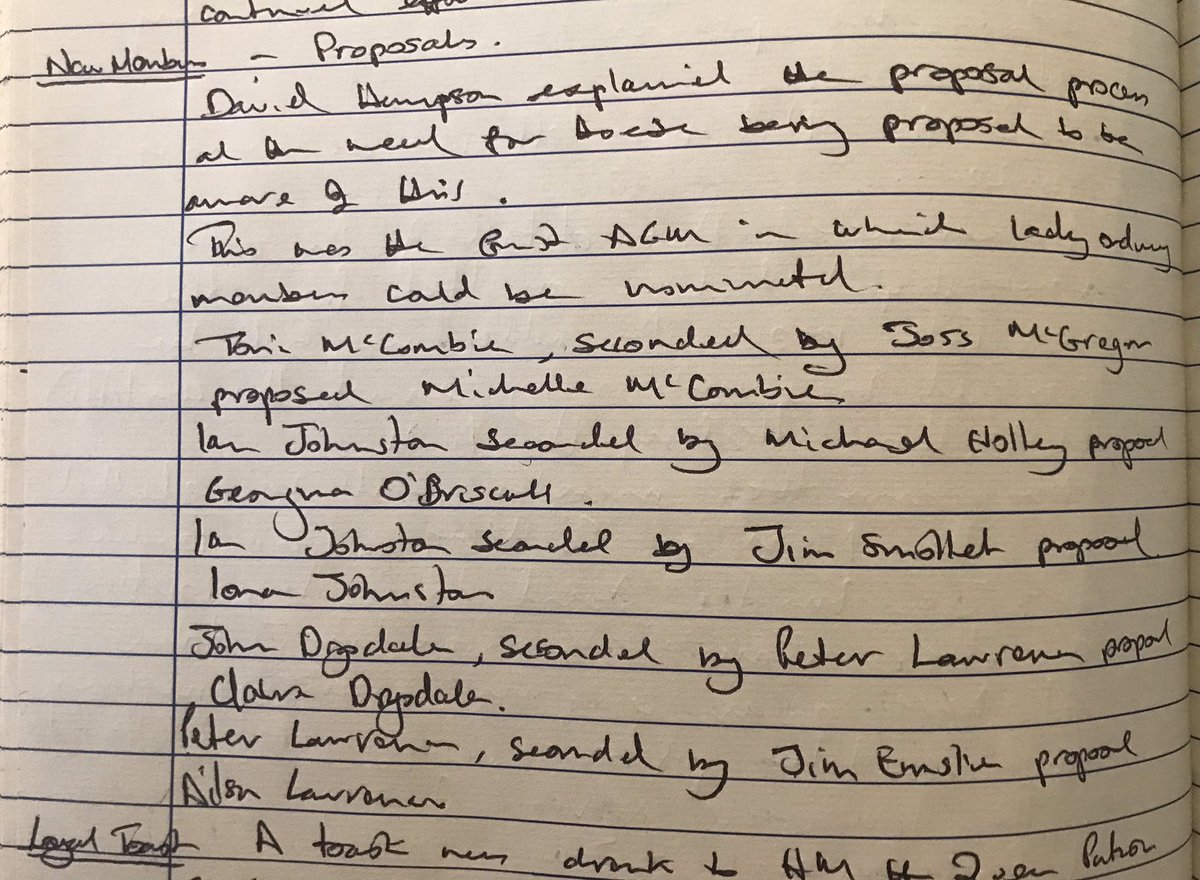 New Members - Proposals.
David Hampson explained the proposal process
at the need for those being proposed to be
aware of this.
This was the first AGM in which lady ordinary
members could be nominated.
McCombie, seconded by Joss McGregor
proposed Michelle McCombie
Ian Johnston seconded by Michael Holley proposed
Georgina O'Driscoll.
Ian Johnston seconded by Jim Smollet proposed
Iona Johnston
John Dugdale, seconded by Peter Lawrence proposed
Claire Dugdale.
Peter Lawrence, seconded by Jim Emslie proposed
Ailsa Lawrence
Loyal Toast A toast was drunk to HM the Queen Patron